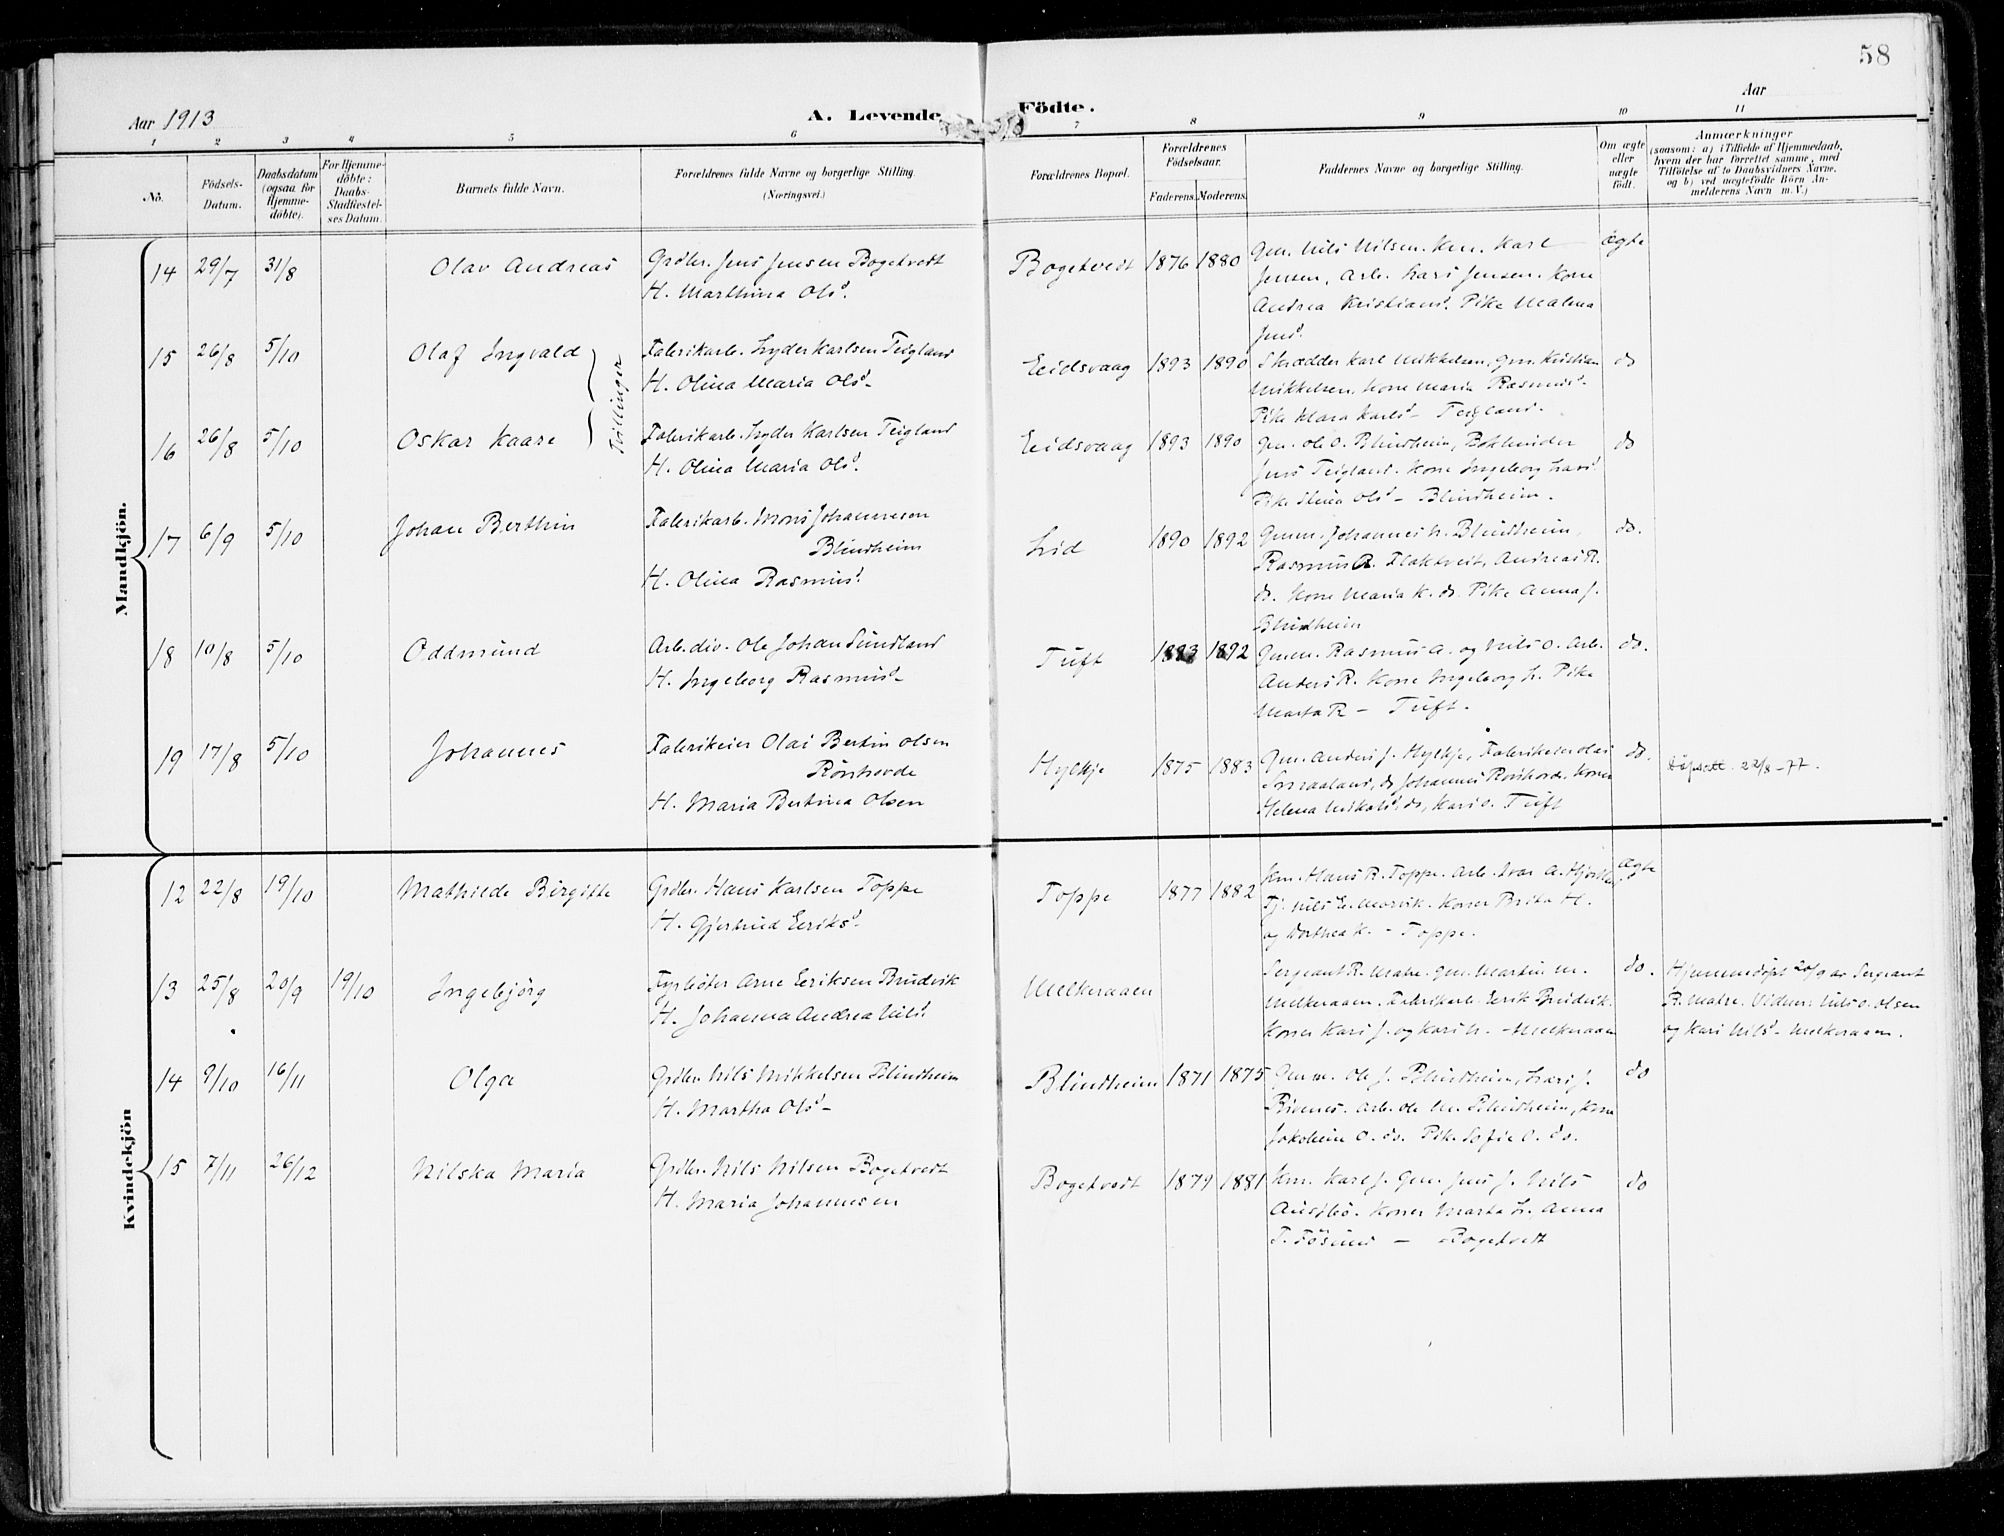 58
Aar 1913
A. Levende Födte.
Aar
1 2 3 4 5 6 7 8 9 10 11
No.
Födsels-Datum.
Daabsdatum (ogsaa for Hjemme-döbte).
For Hjemme-döbte: Daabs-Stadfæstel-ses Datum.
Barnets fulde Navn.
Forældrenes fulde Navne og borgerlige Stilling. (Næringsvei.)
Forældrenes Bopæl.
Forældrenes Födselsaar.
Faderens. Moderens.
Faddernes Navne og borgerlige Stilling.
Om ægte eller uægte födt.
Anmærkninger
(saasom: a) i Tilfælde af Hjemmedaab,
hvem der har forrettet samme, med
Tilföielse af to Daabsvidners Navne,
og b) ved uægtefödte Börn An-
melderens Navn m. V.)
Mandkjön.
14 29/7 31/8 Olav Andreas
Grdbr. Jens Jensen Bogetvedt
H. Marthina Olsd.
Bogetvedt 1876 1880
Gm. Nils Nilsen. Km. Karl
Jensen, Arb. Lars Jensen. Kone
Andrea Kristiansd. Pike Malena
Jensd.
ægte
15 26/8 5/10 Olaf Ingvald
Tvillinger
Fabrikarb. Lyder Karlsen Teigland
H. Olina Maria Olsd-
Eidsvaag 1893 1890
Skrædder Karl Mikkelsen, Gm. Kristian
Mikkelsen, Kone Maria Rasmusd-
Pike Klara Karlsd- Teigland.
do
16 26/8 5/10 Oskar Kaare
Fabrikarb. Lyder Karlsen Teigland
H. Olina Maria Olsd.
Eidsvaag 1893 1890
Gm. Ole O. Blindheim, Bokbinder
Jens Teigland. Kone Ingeborg Larsd.
Pike Olsd- Blindheim.
do
17 6/9 5/10 Johan Berthin
Fabrikarb. Mons Johannesen
Blindheim
H. Olina Rasmusd.
Lid 1890 1892
Gmm. Johannes N. Blindheim,
Rasmus R. Flaktveit, Andreas R.
do. Kone Maria K. do. Pike Anna J.
Blindheim
do.
18 10/8 5/10 Oddmund
Arb. div. Ole Johan Sundland
H. Ingeborg Rasmusd-
Tuft 1883 1892
Gmm. Rasmus A. og Nils O. Arb.
Anders R. Kone Ingeborg L. Pike
Marta R - Tuft.
do.
19 17/8 5/10 Johannes
Fabrikeier Olai Bertin Olsen
Rönhovde
H. Maria Bertina Olsen
Hylkje 1875 1883
Gm. Anders J. Hylkje, Fabrikeier Olai
Smaaland, do Johannes Rönhovde. Koner
Helena Mikalsd. do, Kari O. Tuft
do.
22/8-77.
Kvindekjön
12 22/8 19/10 Mathilde Birgitte
Grdbr. Hans Karlsen Toppe
H. Gjertrud Eeriksd.
Toppe 1877 1882
Km. Hans R. Toppe. Arb. Ivar A.
Tj. Nils E. Morvik. Koner Brita H.
og Dorthea K. - Toppe.
ægte
13 25/8 20/9 19/10 Ingebjörg
Fyrböter Arne Eeriksen Brudvik
H. Johanna Andrea Nilsd.
Melkeraaen
Sergeant R. Matre. Gm. Martin M.
Melkeraaen. Fabrikarb. Eerik Brudvik.
Koner Kari J. og Kari N. - Melkeraaen
do.
Hjemmedøpt 20/9 av Sergeant
R. Matre. Vidner: Nils O. Olsen
og Kari Nilsd- Melkeraaen.
14 9/10 16/11 Olga
Grdbr. Nils Mikkelsen Blindheim
H. Martha Olsd-
Blindheim 1871 1875
Gmm. Ole J. Blindheim, Lars J.
Rivenes. Arb. Ole M. Blindheim, Kone
Jakobine O. do. Pik. Sofie O. do.
do
15 7/11 26/12 Nilska Maria
Grdbr. Nils Nilsen Bogetvedt
H. Maria Johannesen
Bogetvedt 1879 1881
Km. Karl J. Gm. Jens J. Nils
Austbö. Koner Marta L., Anna
T. Tösund - Bogetvedt
do